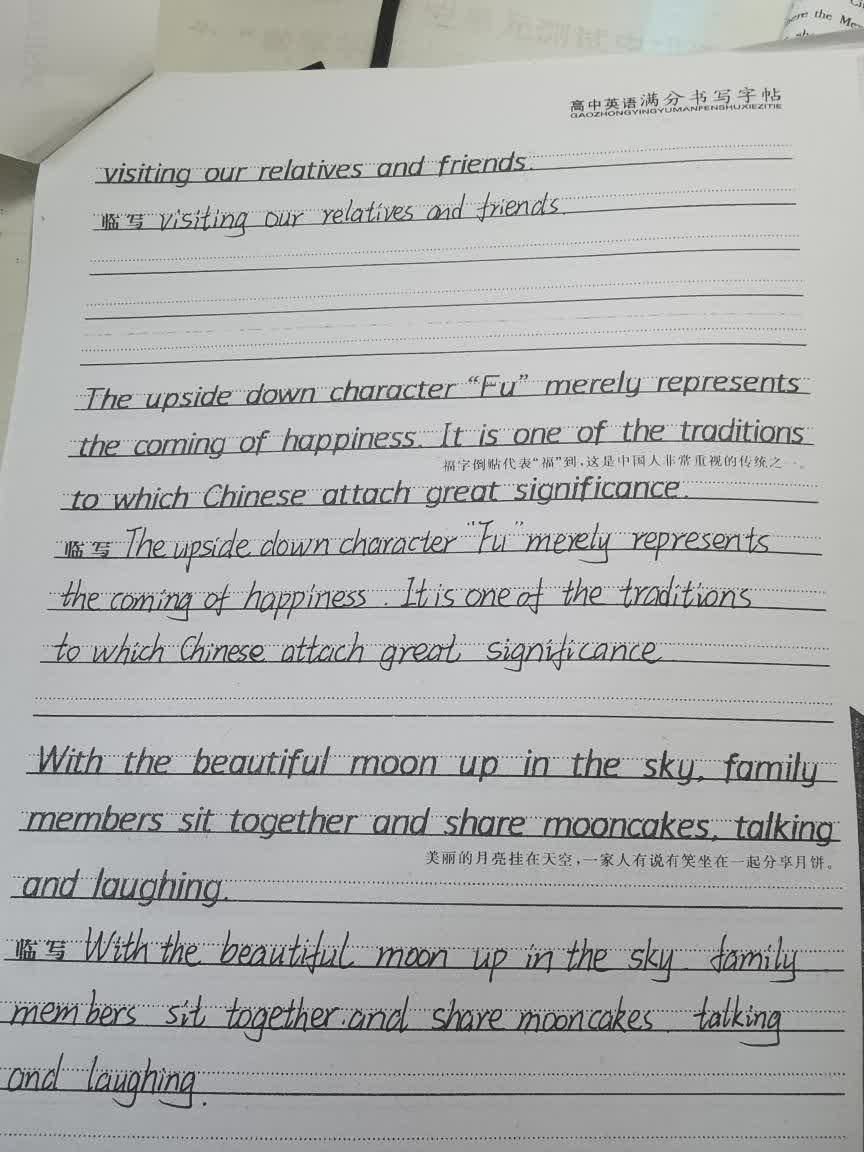 ere the Me
高中英语满分书写字帖
GAOZHONGYINGYUMANFENSHUXIEZITIE
visiting our relatives and friends.
临写 visiting our relatives and friends.
The upside down character “Fu” merely represents
the coming of happiness. It is one of the traditions
福字倒贴代表“福”到,这是中国人非常重视的传统之一。
to which Chinese attach great significance.
临写 The upside down character "Fu" merely represents
the coming of happiness. It is one of the traditions
to which Chinese attach great significance
With the beautiful moon up in the sky, family
members sit together and share mooncakes, talking
美丽的月亮挂在天空,一家人有说有笑坐在一起分享月饼。
and laughing.
临写 With the beautiful moon up in the sky family
members sit together.and share mooncakes talking
and laughing.